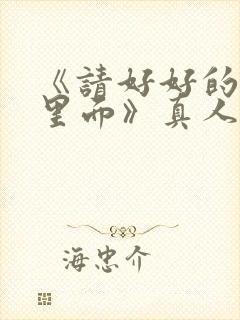 《請好好的
里面》真人
海忠介